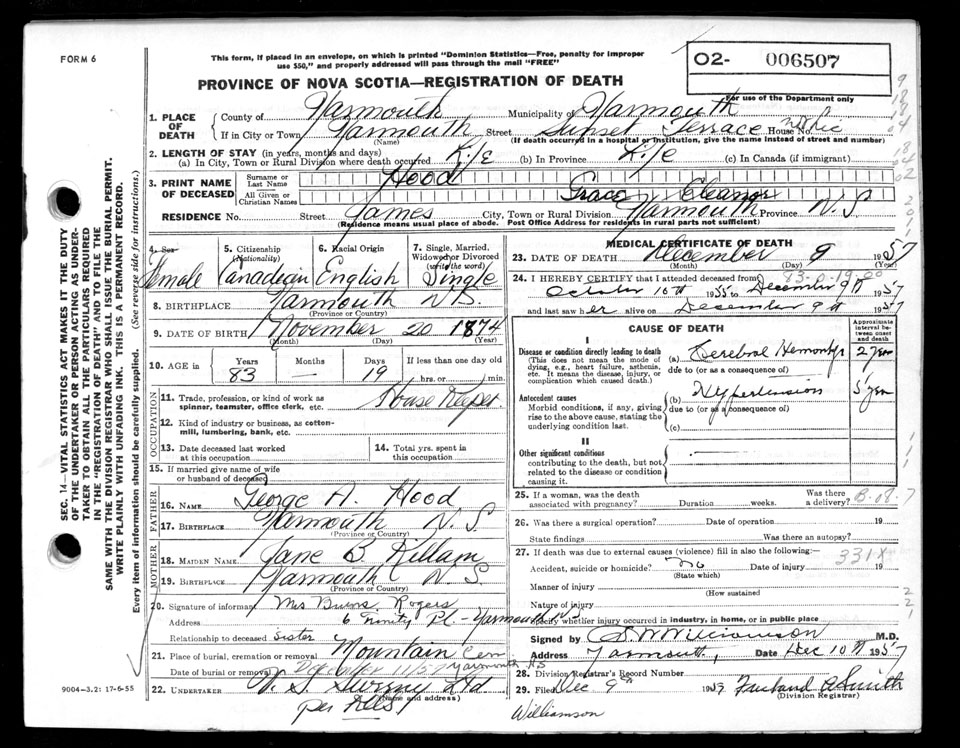 FORM 6
This form, if placed in an envelope, on which is printed "Dominion Statistics—Free, penalty for improper
use $50," and properly addressed will pass through the mail "FREE"
O2- 006507
For use of the Department only
PROVINCE OF NOVA SCOTIA—REGISTRATION OF DEATH
1. PLACE OF DEATH
County of Yarmouth Municipality of Yarmouth
If in City or Town Yarmouth Street Sunset Terrace House No.
(Name) (If death occurred in a hospital or institution, give the name instead of street and number)
2. LENGTH OF STAY (in years, months and days)
(a) In City, Town or Rural Division where death occurred Life (b) In Province Life (c) In Canada (if immigrant)
3. PRINT NAME OF DECEASED
Surname or Last Name Hood
All Given or Christian Names Grace Eleanor
RESIDENCE No. Street James City, Town or Rural Division Yarmouth Province N.S.
(Residence means usual place of abode. Post Office Address for residents in rural parts not sufficient)
4. Sex Female
5. Citizenship (Nationality) Canadian
6. Racial Origin English
7. Single, Married, Widowed or Divorced (write the word) Single
8. BIRTHPLACE Yarmouth N.S.
(Province or Country)
9. DATE OF BIRTH November 20 1874
(Month) (Day) (Year)
10. AGE in Years 83 Months — Days 19 If less than one day old hrs. or min.
OCCUPATION
11. Trade, profession, or kind of work as spinner, teamster, office clerk, etc. House Keeper
12. Kind of industry or business, as cotton-mill, lumbering, bank, etc.
13. Date deceased last worked at this occupation
14. Total yrs. spent in this occupation
15. If married give name of wife or husband of deceased
FATHER
16. NAME George A. Hood
17. BIRTHPLACE Yarmouth N.S.
(Province or Country)
MOTHER
18. MAIDEN NAME Jane B. Killam
19. BIRTHPLACE Yarmouth N.S.
(Province or Country)
20. Signature of informant Mrs Burns Rogers
Address 6 Trinity Pl. - Yarmouth N.S.
Relationship to deceased Sister
21. Place of burial, cremation or removal Mountain Cem Yarmouth N.S
Date of burial or removal December 11/57
22. UNDERTAKER V. S. Sweeny Ltd
(Name and address)
per
MEDICAL CERTIFICATE OF DEATH
23. DATE OF DEATH December 9 1957
(Month) (Day) (Year)
83-0-19-00
24. I HEREBY CERTIFY that I attended deceased from
October 10th 1955 to December 9th 1957
and last saw her alive on December 9th 1957
CAUSE OF DEATH
Approximate interval between onset and death
I
Disease or condition directly leading to death
(This does not mean the mode of dying, e.g., heart failure, asthenia, etc. It means the disease, injury, or complication which caused death.)
(a) Cerebral Hemorrhage
due to (or as a consequence of)
Antecedent causes
Morbid conditions, if any, giving rise to the above cause, stating the underlying condition last.
(b) Hypertension
due to (or as a consequence of)
(c)
II
Other significant conditions
contributing to the death, but not related to the disease or condition causing it.
25. If a woman, was the death associated with pregnancy? Duration weeks. Was there a delivery?
26. Was there a surgical operation? Date of operation 19
State findings Was there an autopsy?
27. If death was due to external causes (violence) fill in also the following:— 331X
Accident, suicide or homicide? No Date of injury 19
(State which)
Manner of injury
(How sustained)
Nature of injury
Specify whether injury occurred in industry, in home, or in public place
Signed by S. W. Williamson M.D.
Address Yarmouth, Date Dec 10th 1957
28. Division Registrar's Record Number
29. Filed Dec 9th 1957
(Division Registrar)
Williamson
9004-3.2: 17-6-55
SEC. 14—VITAL STATISTICS ACT MAKES IT THE DUTY
OF THE UNDERTAKER OR PERSON ACTING AS UNDER-
TAKER TO OBTAIN ALL THE PARTICULARS REQUIRED
IN THE "REGISTRATION OF DEATH" AND TO FILE THE
SAME WITH THE DIVISION REGISTRAR WHO SHALL ISSUE THE BURIAL PERMIT.
WRITE PLAINLY WITH UNFADING INK. THIS IS A PERMANENT RECORD.
Every item of information should be carefully supplied. (See reverse side for instructions.)